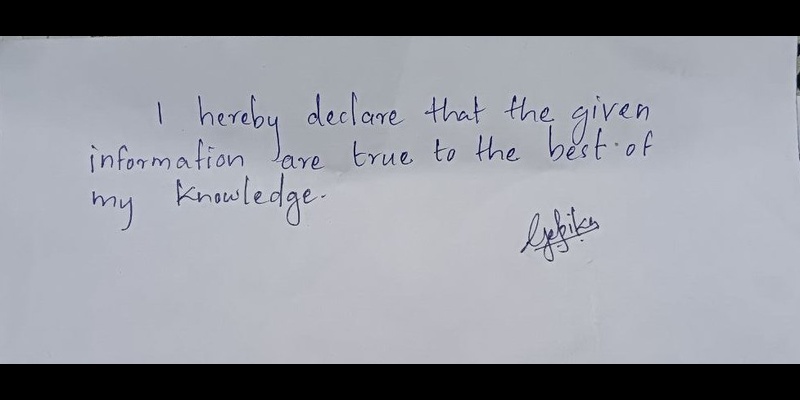 I hereby declare that the given
information are true to the best of
my knowledge.